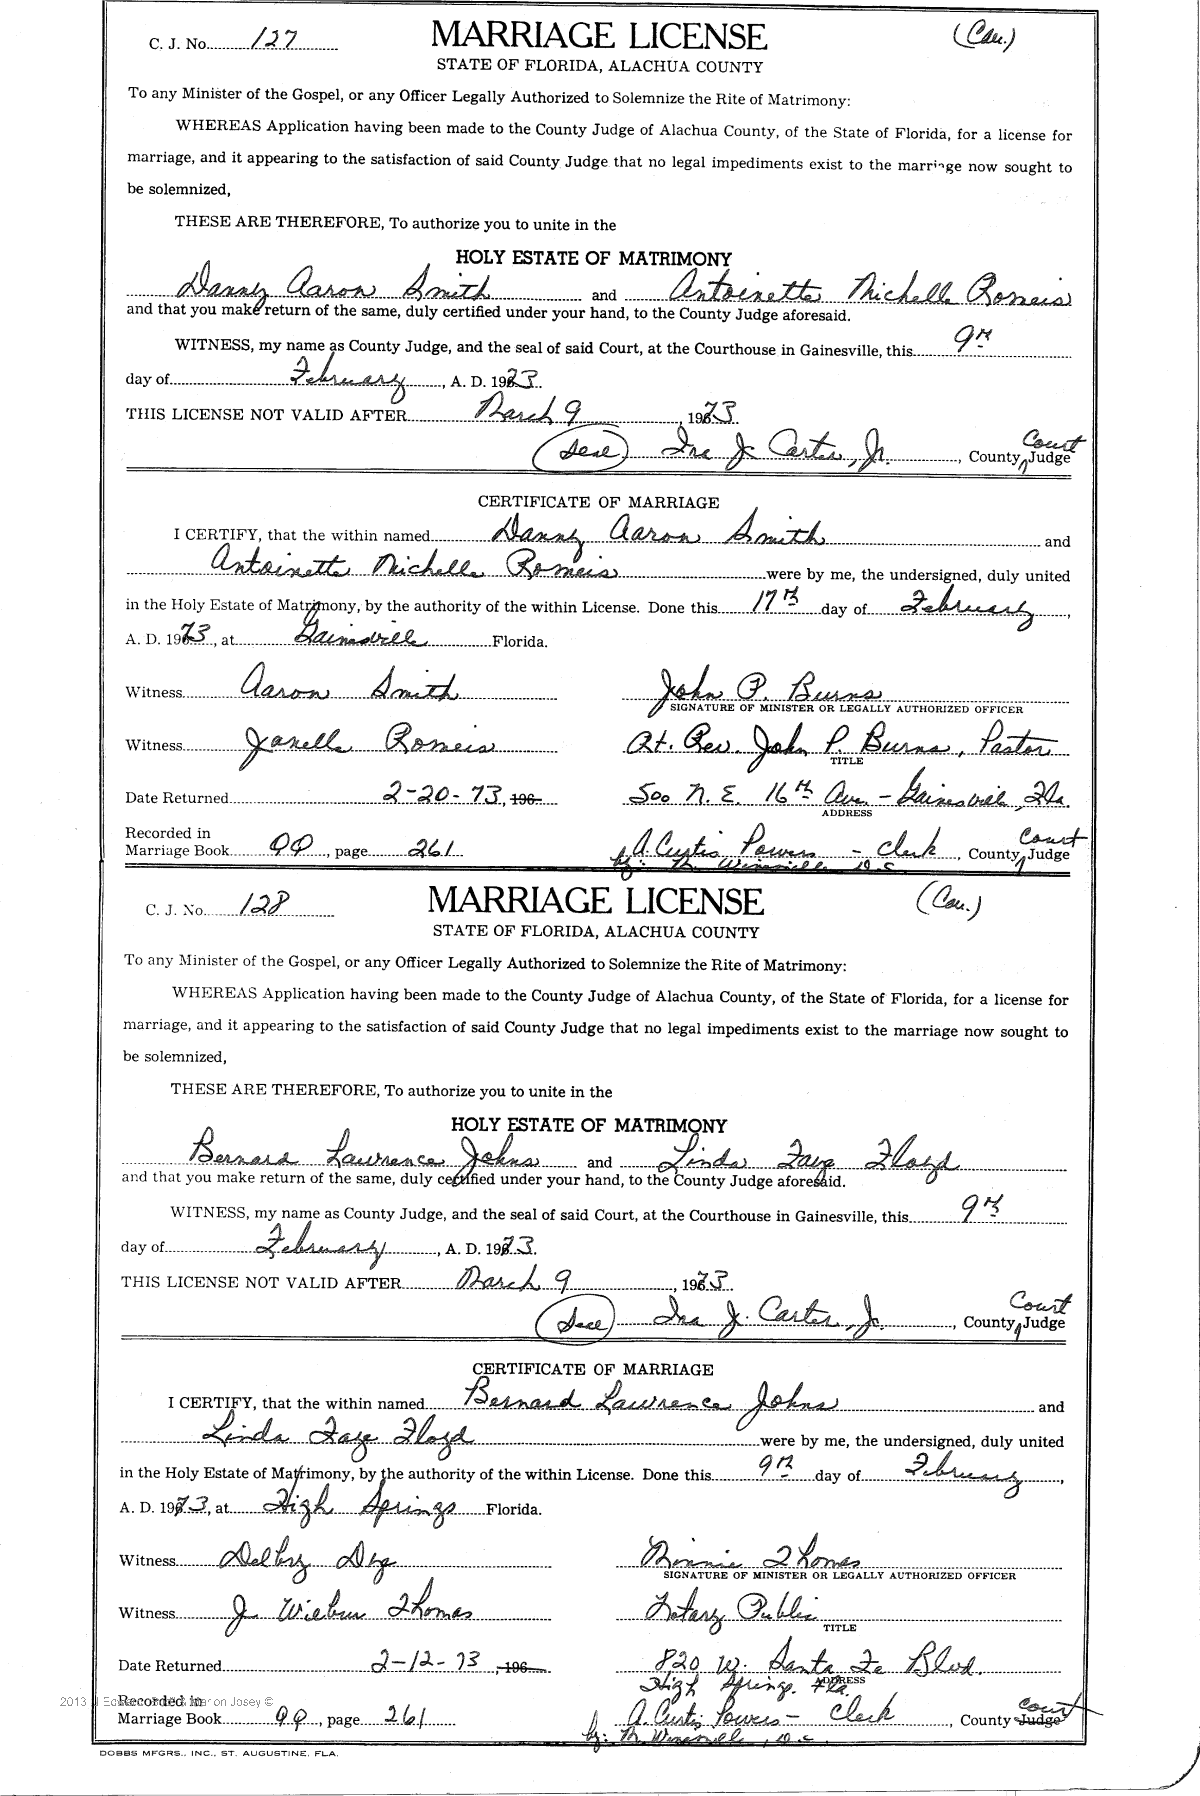 C. J. No. 127 MARRIAGE LICENSE (Cau.)
STATE OF FLORIDA, ALACHUA COUNTY
To any Minister of the Gospel, or any Officer Legally Authorized to Solemnize the Rite of Matrimony:
WHEREAS Application having been made to the County Judge of Alachua County, of the State of Florida, for a license for
marriage, and it appearing to the satisfaction of said County Judge that no legal impediments exist to the marriage now sought to
be solemnized,
THESE ARE THEREFORE, To authorize you to unite in the
HOLY ESTATE OF MATRIMONY
Danny Aaron Smith and Antoinette Michelle Romeis
and that you make return of the same, duly certified under your hand, to the County Judge aforesaid.
WITNESS, my name as County Judge, and the seal of said Court, at the Courthouse in Gainesville, this 9th
day of February, A. D. 1973.
THIS LICENSE NOT VALID AFTER March 9, 1973.
(Seal) Ira J. Carter, Jr., County Court Judge
CERTIFICATE OF MARRIAGE
I CERTIFY, that the within named Danny Aaron Smith and
Antoinette Michelle Romeis were by me, the undersigned, duly united
in the Holy Estate of Matrimony, by the authority of the within License. Done this 17th day of February,
A. D. 1973, at Gainesville Florida.
Witness Aaron Smith John P. Burns
SIGNATURE OF MINISTER OR LEGALLY AUTHORIZED OFFICER
Witness Janelle Romeis Rt. Rev. John P. Burns, Pastor
TITLE
Date Returned 2-20-73, 196 500 N. E. 16th Ave. - Gainesville, Fla.
ADDRESS
Recorded in
Marriage Book QQ, page 261 A. Curtis Powers - Clerk, County Court Judge
by: M. D.C.
C. J. No. 128 MARRIAGE LICENSE (Cau.)
STATE OF FLORIDA, ALACHUA COUNTY
To any Minister of the Gospel, or any Officer Legally Authorized to Solemnize the Rite of Matrimony:
WHEREAS Application having been made to the County Judge of Alachua County, of the State of Florida, for a license for
marriage, and it appearing to the satisfaction of said County Judge that no legal impediments exist to the marriage now sought to
be solemnized,
THESE ARE THEREFORE, To authorize you to unite in the
HOLY ESTATE OF MATRIMONY
Bernard Lawrence Johns and Linda Faye Floyd
and that you make return of the same, duly certified under your hand, to the County Judge aforesaid.
WITNESS, my name as County Judge, and the seal of said Court, at the Courthouse in Gainesville, this 9th
day of February, A. D. 1973.
THIS LICENSE NOT VALID AFTER March 9, 1973.
(Seal) Ira J. Carter, Jr., County Court Judge
CERTIFICATE OF MARRIAGE
I CERTIFY, that the within named Bernard Lawrence Johns and
Linda Faye Floyd were by me, the undersigned, duly united
in the Holy Estate of Matrimony, by the authority of the within License. Done this 9th day of February,
A. D. 1973, at High Springs Florida.
Witness Delby Dye Minnie Thomas
SIGNATURE OF MINISTER OR LEGALLY AUTHORIZED OFFICER
Witness J. Wilbur Thomas Notary Public
TITLE
Date Returned 2-12-73, 196 820 W. Santa Fe Blvd.
High Springs, Fla. ADDRESS
Recorded in
Marriage Book QQ, page 261 A. Curtis Powers - Clerk, County Court Judge
by: M. D.C.
DOBBS MFGRS., INC., ST. AUGUSTINE, FLA.